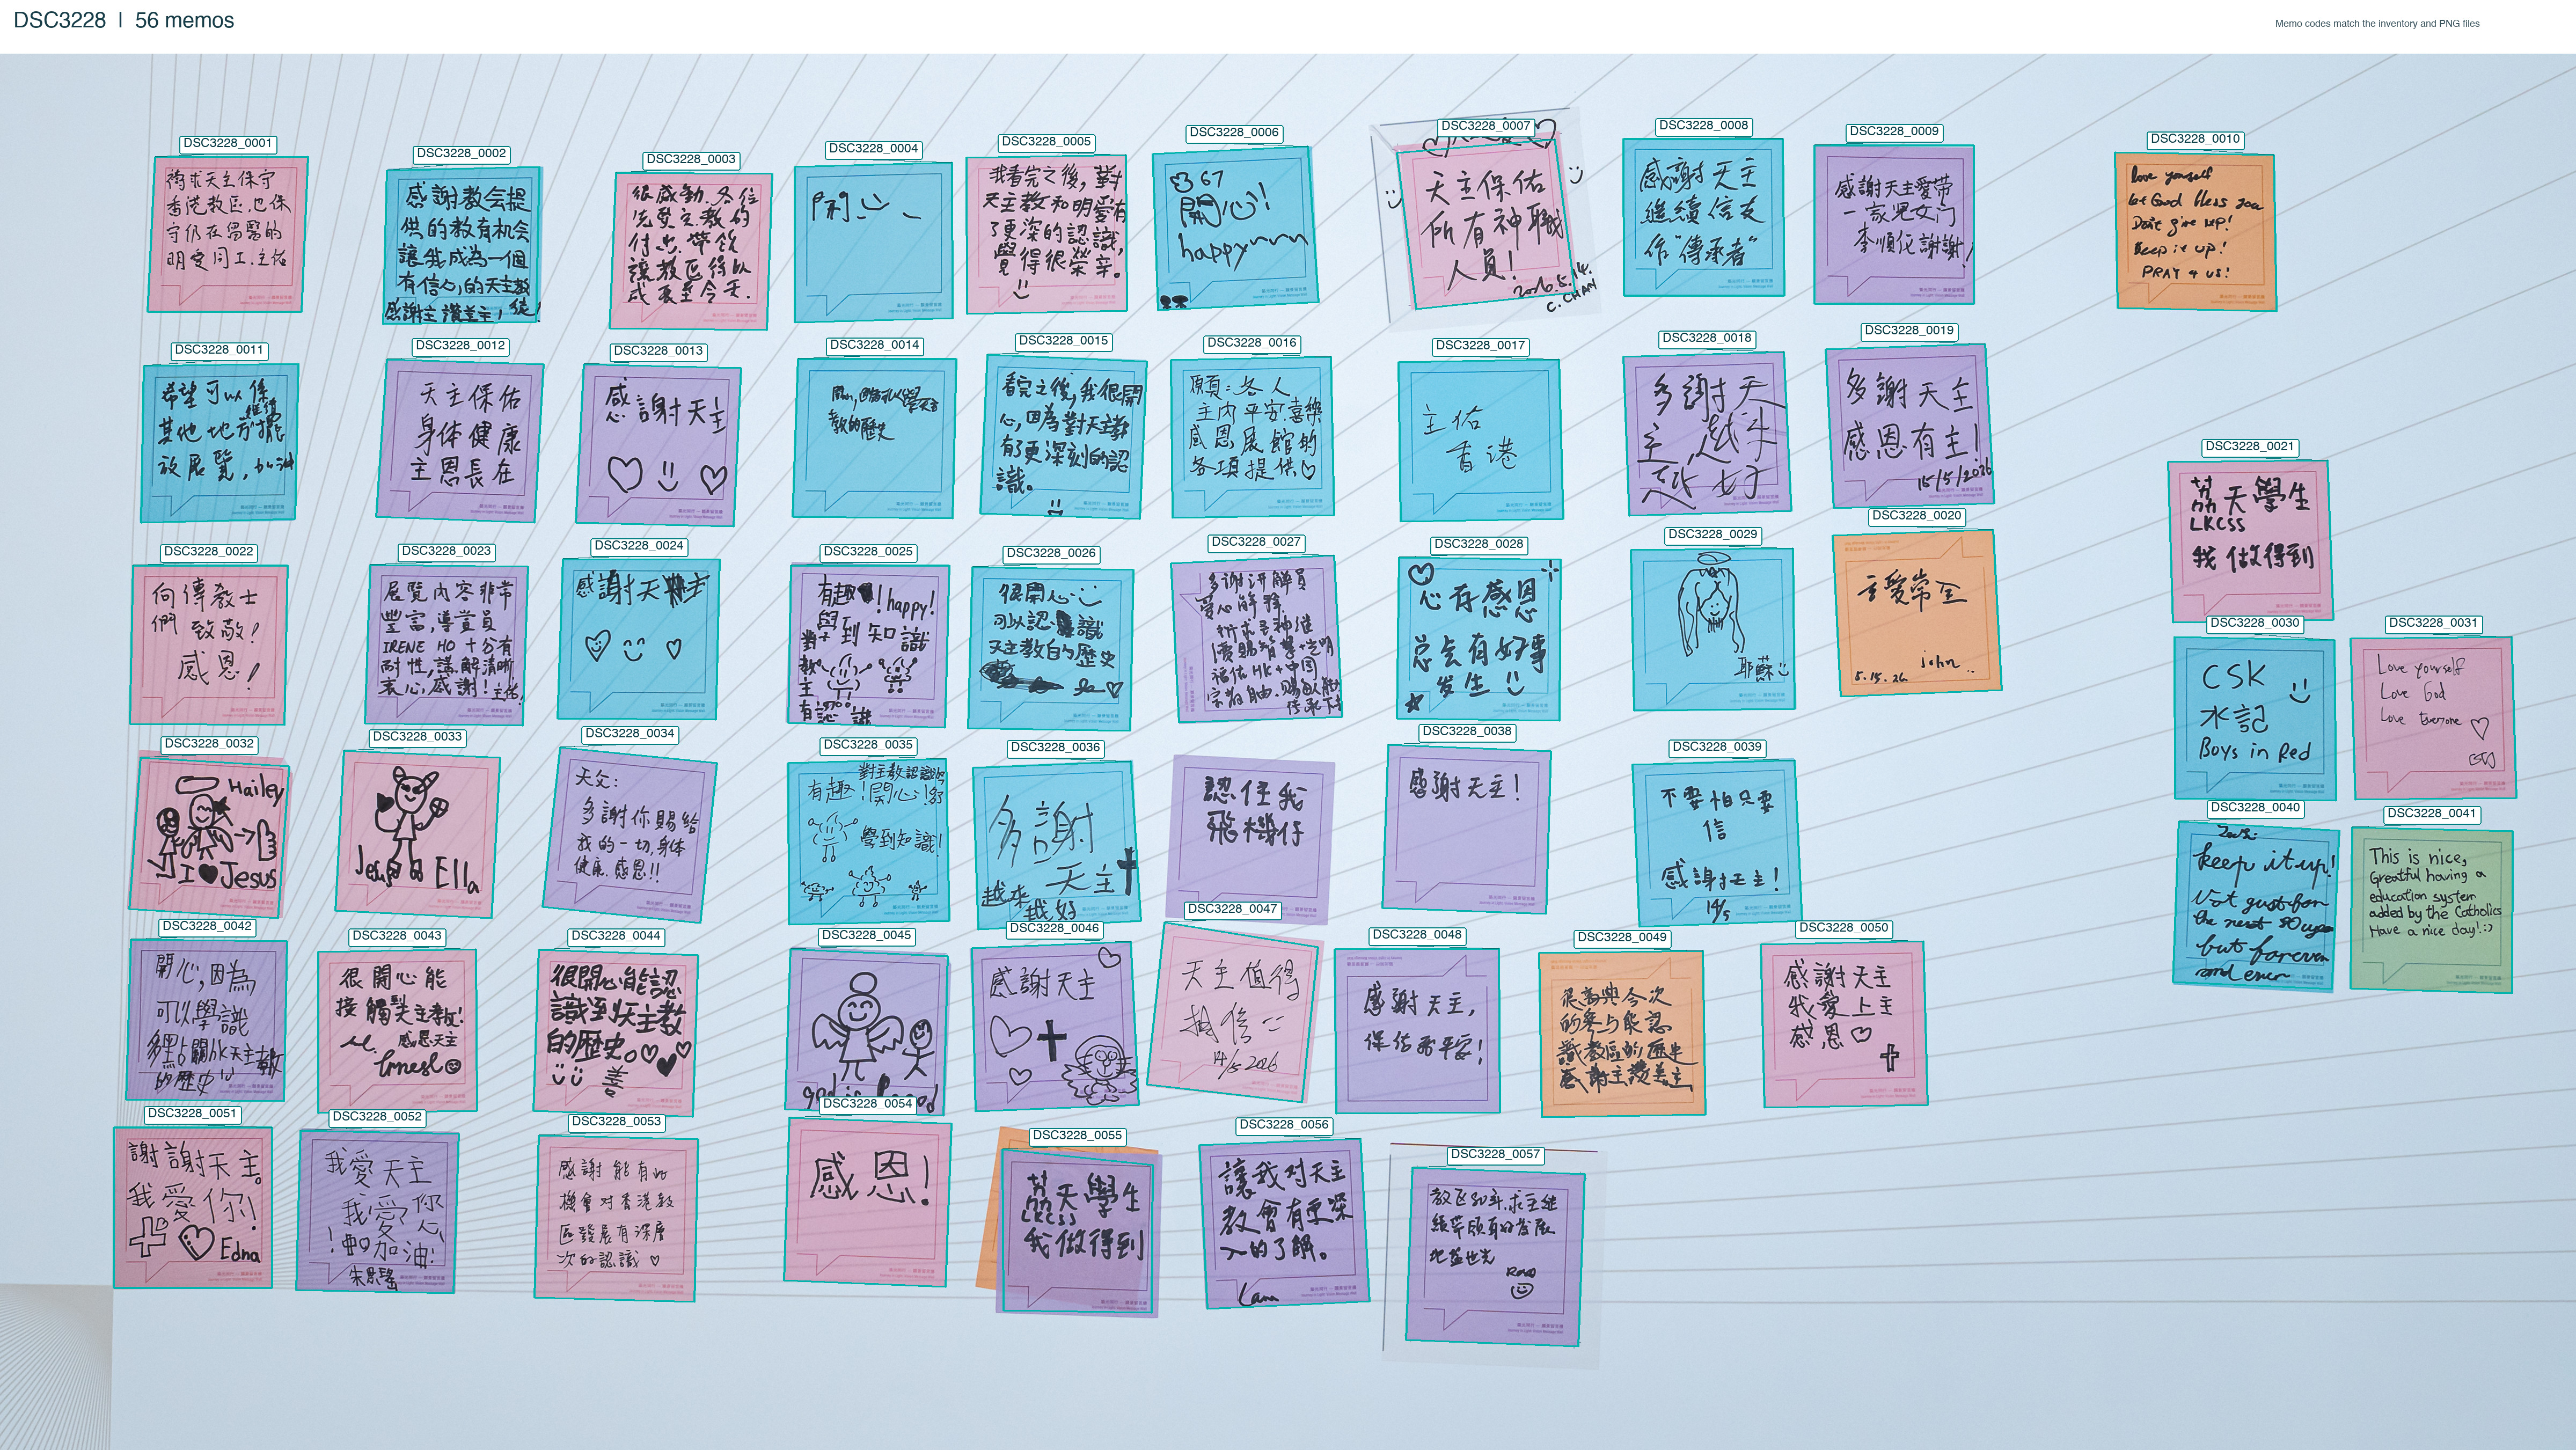 DSC3228 | 56 memos
Memo codes match the inventory and PNG files
DSC3228_0001
祷求天主保守
香港教區,也保
守仍在留醫的
明愛同工.主佑
DSC3228_0002
感謝教会提
供的教育机会
讓我成為一個
有信心的天主教
感謝主 讚美主! 徒!
DSC3228_0003
很感動.各位
先受主教的
付出.帶領
讓教區得以
成長至今天.
DSC3228_0004
開心
DSC3228_0005
我看完之後,對
天主教和明愛有
了更深的認識,
覺得很榮幸。
DSC3228_0006
67
開心!
happy
DSC3228_0007
天主保佑
所有神職
人員!
2026.5.14.
C.CHAN
DSC3228_0008
感謝天主
繼續信友
作"傳承者"
DSC3228_0009
感謝天主愛带
一家兒女门
李順化謝謝!
DSC3228_0010
love yourself
let God bless you
Don't give up!
Keep it up!
PRAY 4 US!
DSC3228_0011
希望可以係
維續
其他地方擺
放展覽,加油
DSC3228_0012
天主保佑
身体健康
主恩長在
DSC3228_0013
感謝天主
DSC3228_0014
開心,因為可以學天主
教的歷史
DSC3228_0015
看完之後,我很開
心,因為對天主教
有了更深刻的認
識。
DSC3228_0016
願:各人
主内平安喜樂
感恩展館的
各項提供♡
DSC3228_0017
主佑
香港
DSC3228_0018
多謝天
主,越斗
越好
DSC3228_0019
多謝天主
感恩有主!
15/5/2026
DSC3228_0020
主愛常在
john
5.15.26
DSC3228_0021
荔天學生
LKCSS
我做得到
DSC3228_0022
向傳教士
們致敬!
感恩!
DSC3228_0023
展覽内容非常
豐富,導賞員
IRENE HO 十分有
耐性,講解清晰
衷心感謝!主佑!
DSC3228_0024
感謝天主
DSC3228_0025
有趣!happy!
學到知識
對
教
主
有認識
DSC3228_0026
很開心
可以認識
天主教白的歷史
DSC3228_0027
多謝讲解員
愛心解釋
祈求圣神继
續賜智慧+光明
福佑HK+中国
宗教自由.
傳承下去
DSC3228_0028
心存感恩
总会有好事
发生
DSC3228_0029
耶蘇
DSC3228_0030
CSK
水記
Boys in Red
DSC3228_0031
Love yourself
Love God
Love Everyone ♡
DSC3228_0032
Hailey
I ♥ Jesus
DSC3228_0033
Jesus Ella
DSC3228_0034
天父:
多謝你賜給
我的一切,身体
健康.感恩!!
DSC3228_0035
對主教認識
有趣!開心!
學到知識!
DSC3228_0036
多謝
天主
越來
越好
認住我
飛機仔
DSC3228_0038
感謝天主!
DSC3228_0039
不要怕只要
信
感謝天主!
14/5
DSC3228_0040
keep it up!
Not just for
the next 80 ygs
but forever
and ever
DSC3228_0041
This is nice,
Greatful having a
education system
added by the Catholics
Have a nice day! :)
DSC3228_0042
開心,因為
可以學識
多點關hk天主教
的歷史
DSC3228_0043
很開心能
接觸天主教!
感恩天主
Ernest
DSC3228_0044
很開心能認
識到天主教
的歷史。
善
DSC3228_0045
god is good
DSC3228_0046
感謝天主
DSC3228_0047
天主值得
相信
14/5 2026
DSC3228_0048
感謝天主,
保佑我平安!
DSC3228_0049
很高興今次
的參与能認
識教區的歷史
感謝主讚美主
DSC3228_0050
感謝天主
我愛上主
感恩♡
DSC3228_0051
謝謝天主。
我愛你!
Edna
DSC3228_0052
我愛天主
我愛你
加油!
朱思瑤
DSC3228_0053
感謝能有此
機會对香港教
區發展有深層
次的認識♡
DSC3228_0054
感恩!
DSC3228_0055
荔天學生
LKCSS
我做得到
DSC3228_0056
讓我对天主
教會有更深
入的了解。
Lana
DSC3228_0057
教区80年.求主继
續带领有的發展
地鹽世光